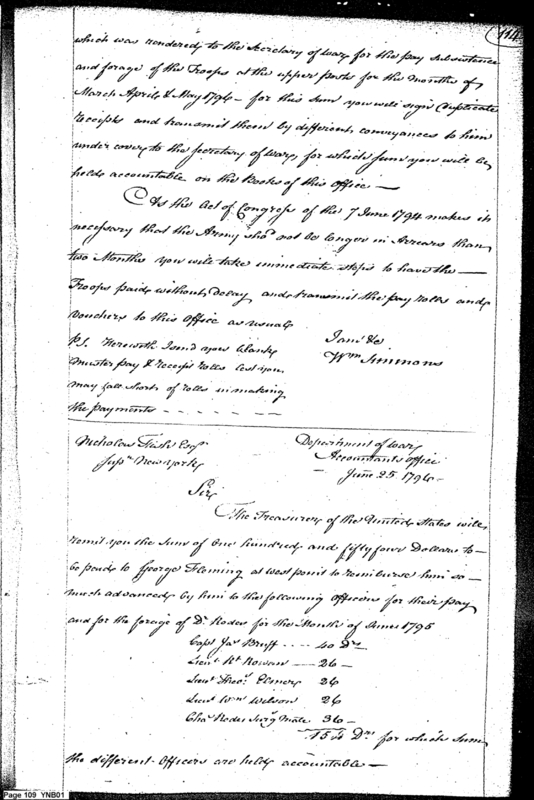 114
which was rendered to the Secretary of War for the pay subsistance
and forage of the Troops at the upper posts for the Months of
March April & May 1794 - for this Sum you will sign Duplicate
receipts and transmit them by different conveyances to him
under cover to the Secretary of War, for which Sum you will be
held accountable on the Books of this Office —
As the Act of Congress of the 7 June 1794 makes it
necessary that the Army shod not be longer in Arrears than
two Months you will take immediate steps to have the —
Troops paid without delay and transmit the pay rolls and
vouchers to this Office as usual
I am &c
Wm Simmons
P.S. Herewith I send you blank
Muster pay & receipt rolls lest you
may fall short of rolls in making
the payments - - - - -
Nicholas Fish Esqr
Supr New York
Department of War
Accountants Office
June 25 1794 -
Sir
The Treasurer of the United States will
remit you the Sum of One hundred and fifty four Dollars to -
be paid to George Fleming at west point to reimburse him so -
much advanced by him to the following officers for their pay
and for the forage of Dr Rodes for the Month of June 1795
Capt Jas Bruff - - - - 40 Drs
Lieut Rt Rowan - - - 26 -
Lieut Theor. Elmer 26
Lieut Wm Wilson 26
Chas Rodes Surgs Mate 36 -
154 Drs for which Sum
the different Officers are held accountable -
Page 109 YNB01